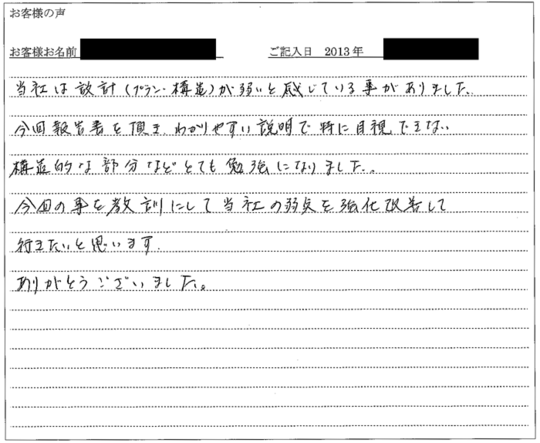 お客様の声
お客様お名前 ご記入日 2013年
当社は設計(プラン・構造)が弱いと感じている事がありました。
今回報告書を頂き わかりやすい説明で特に目視できない
構造的な部分などとても勉強になりました。
今回の事を教訓にして当社の弱点を強化改善して
行きたいと思います。
ありがとうございました。